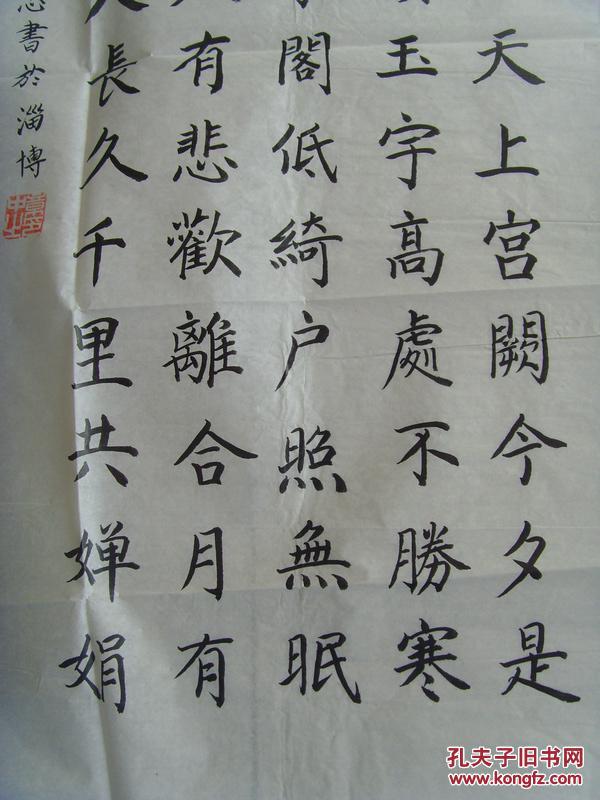 天上宮闕今夕是
玉宇高處不勝寒
閣低綺户照無眠
有悲歡離合月有
長久千里共嬋娟
書於淄博
孔夫子旧书网
www.kongfz.com